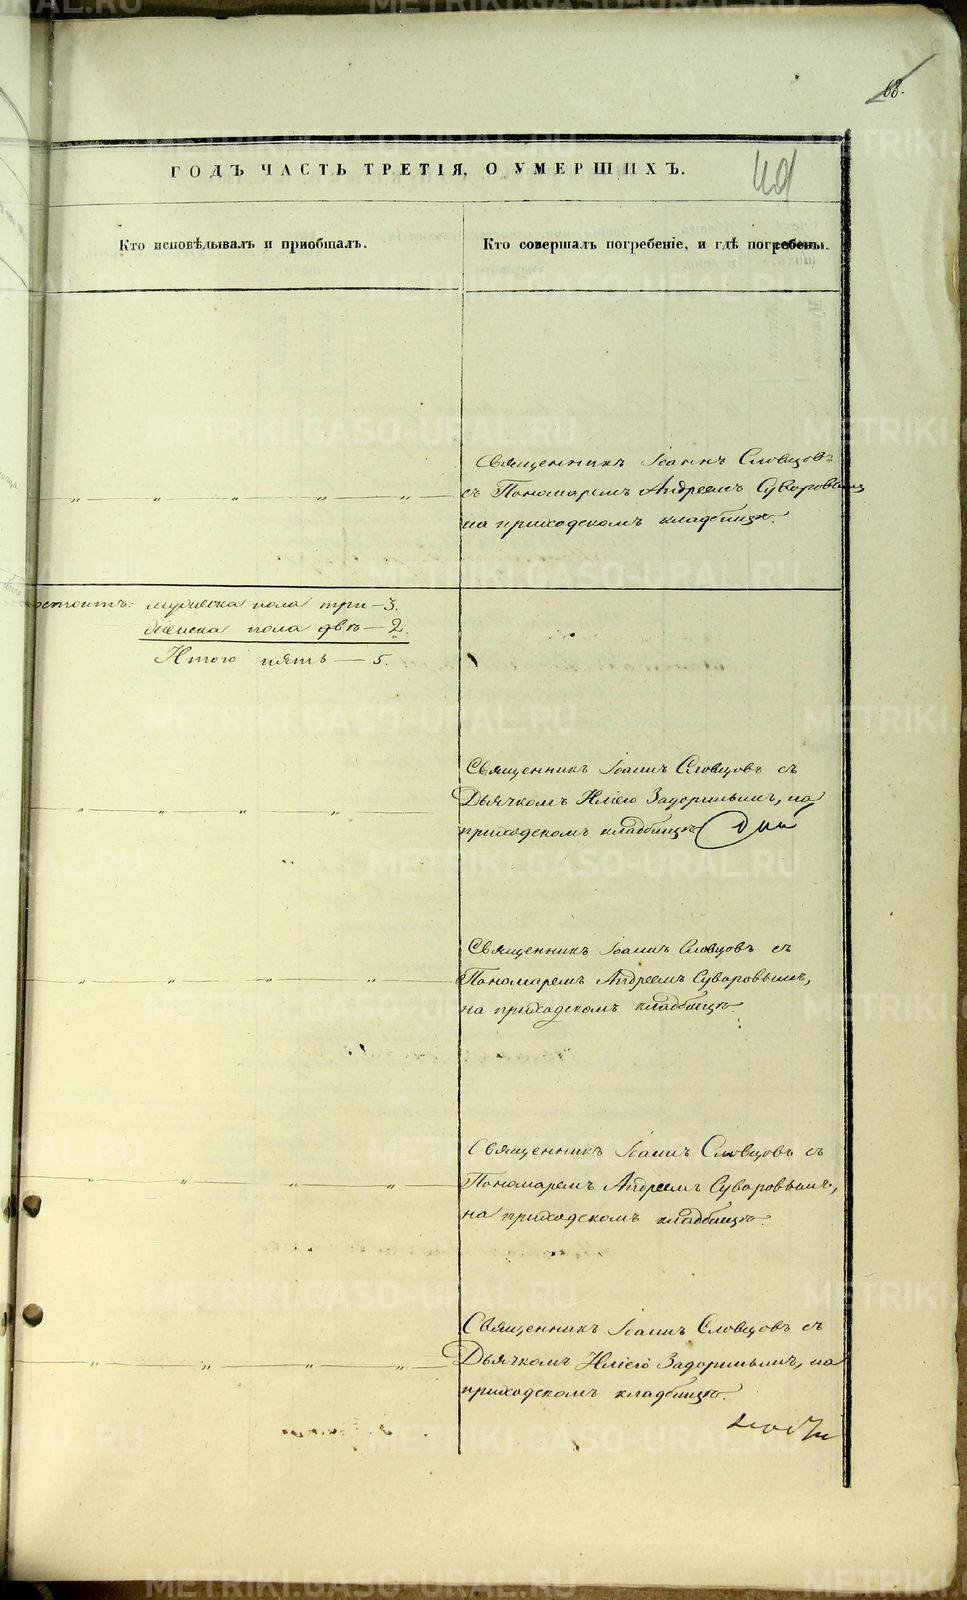 68.
ГОДЪ ЧАСТЬ ТРЕТІЯ, О УМЕРШИХЪ.
Кто исповѣдывалъ и пріобщалъ.
Кто совершалъ погребеніе, и гдѣ погребены.
Священникъ Іоаннъ Словцовъ
съ Пономаремъ Андреемъ Суворовымъ
на приходскомъ кладбищѣ.
мужеска пола три — 3.
женска пола двѣ — 2.
Итого пять — 5.
Священникъ Іоаннъ Словцовъ съ
Дьячкомъ Иліею Задоринымъ, на
приходскомъ кладбищѣ
Священникъ Іоаннъ Словцовъ съ
Пономаремъ Андреемъ Суворовымъ,
на приходскомъ кладбищѣ.
Священникъ Іоаннъ Словцовъ съ
Пономаремъ Андреемъ Суворовымъ,
на приходскомъ кладбищѣ.
Священникъ Іоаннъ Словцовъ съ
Дьячкомъ Иліею Задоринымъ, на
приходскомъ кладбищѣ.
METRIKI.GASO-URAL.RU